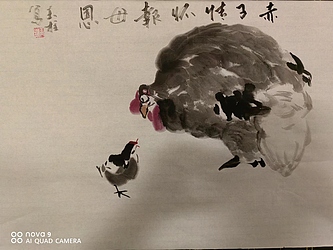 赤子情怀报母恩
nova 9
AI QUAD CAMERA